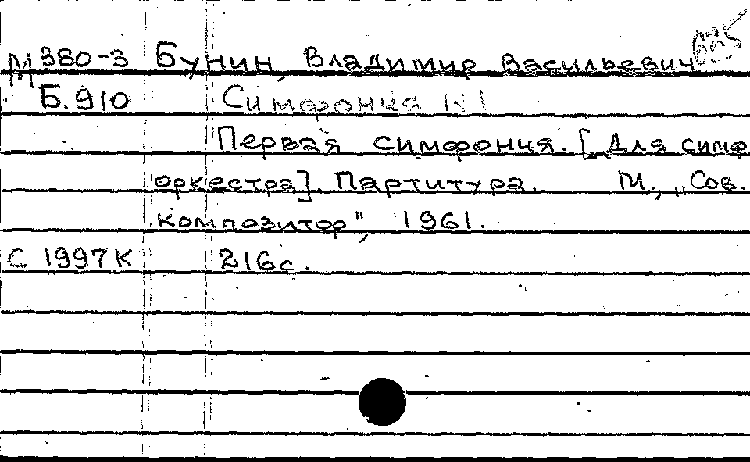 М 380-3 Бунин, Владимир Васильевич
Б.910 Симфония №1
Первая симфония. [Для симф.
оркестра]. Партитура. М., „Сов.
композитор", 1961.
С 1997К 216с.